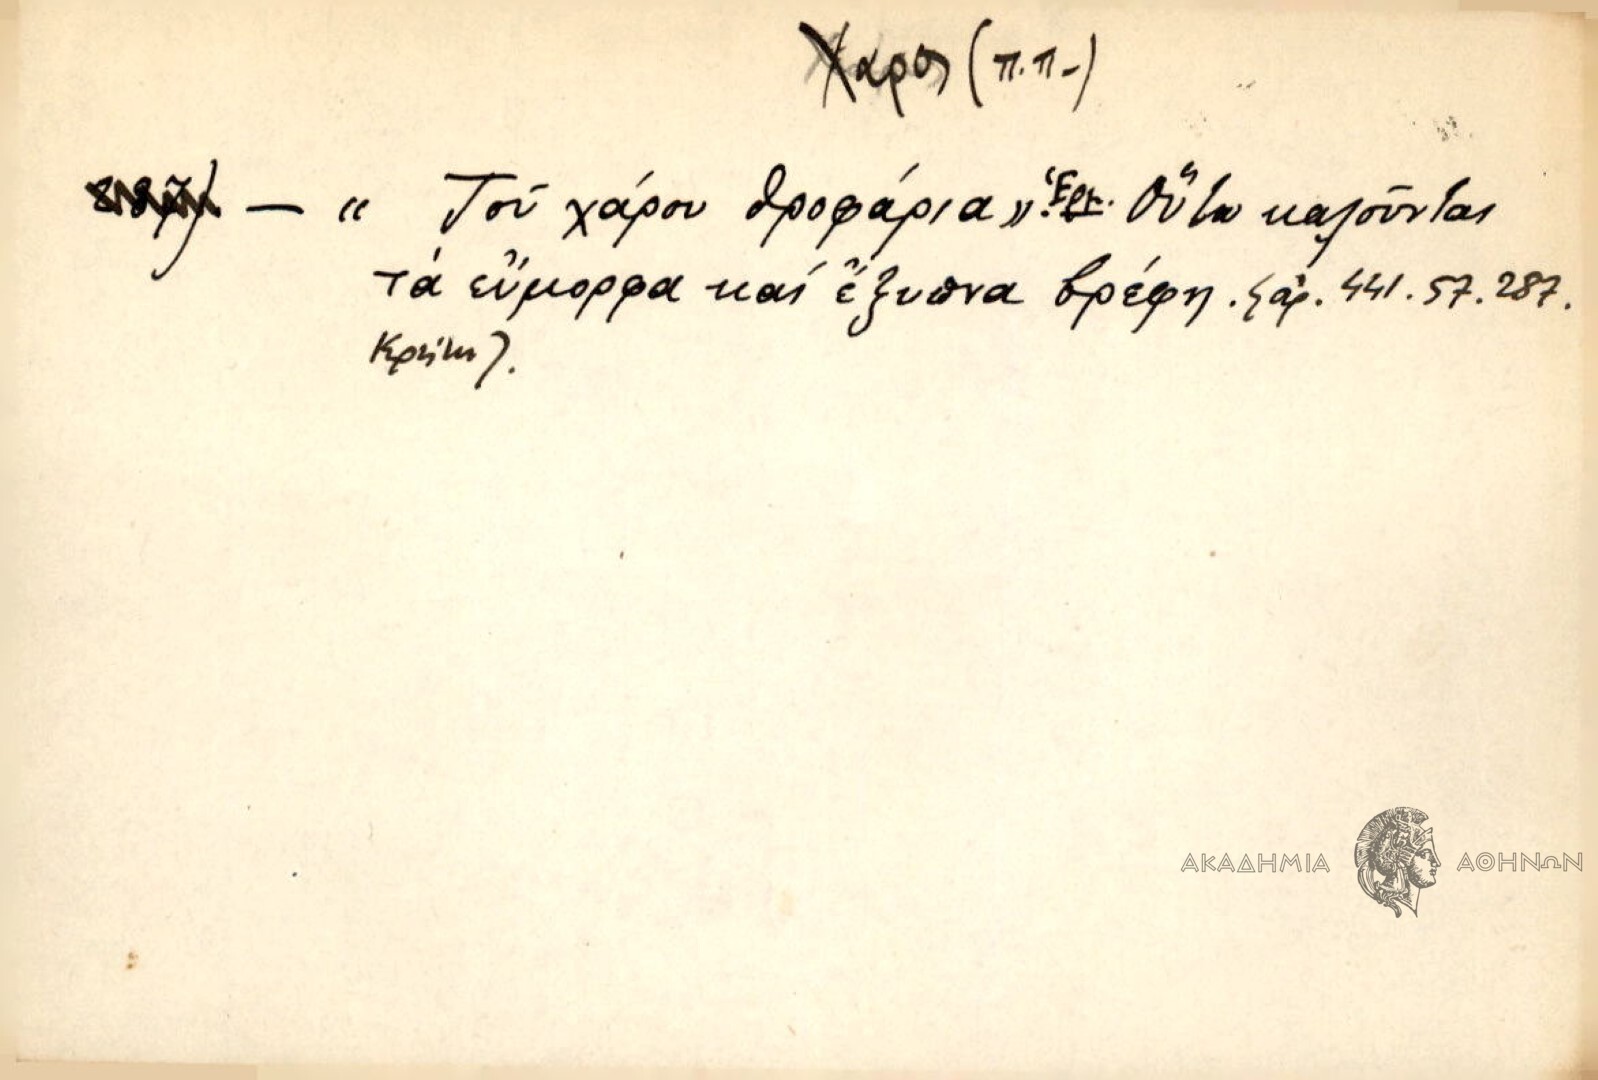 Χάρος (π.π-)
887) — « Τοῦ χάρου θροφάρια» Ἑρμ. Οὕτω καλοῦνται
τὰ εὔμορφα καὶ ἔξυπνα βρέφη. (ἀρ. 441. 57. 287.
Κρήτη).
ΑΚΑΔΗΜΙΑ ΑΘΗΝΩΝ